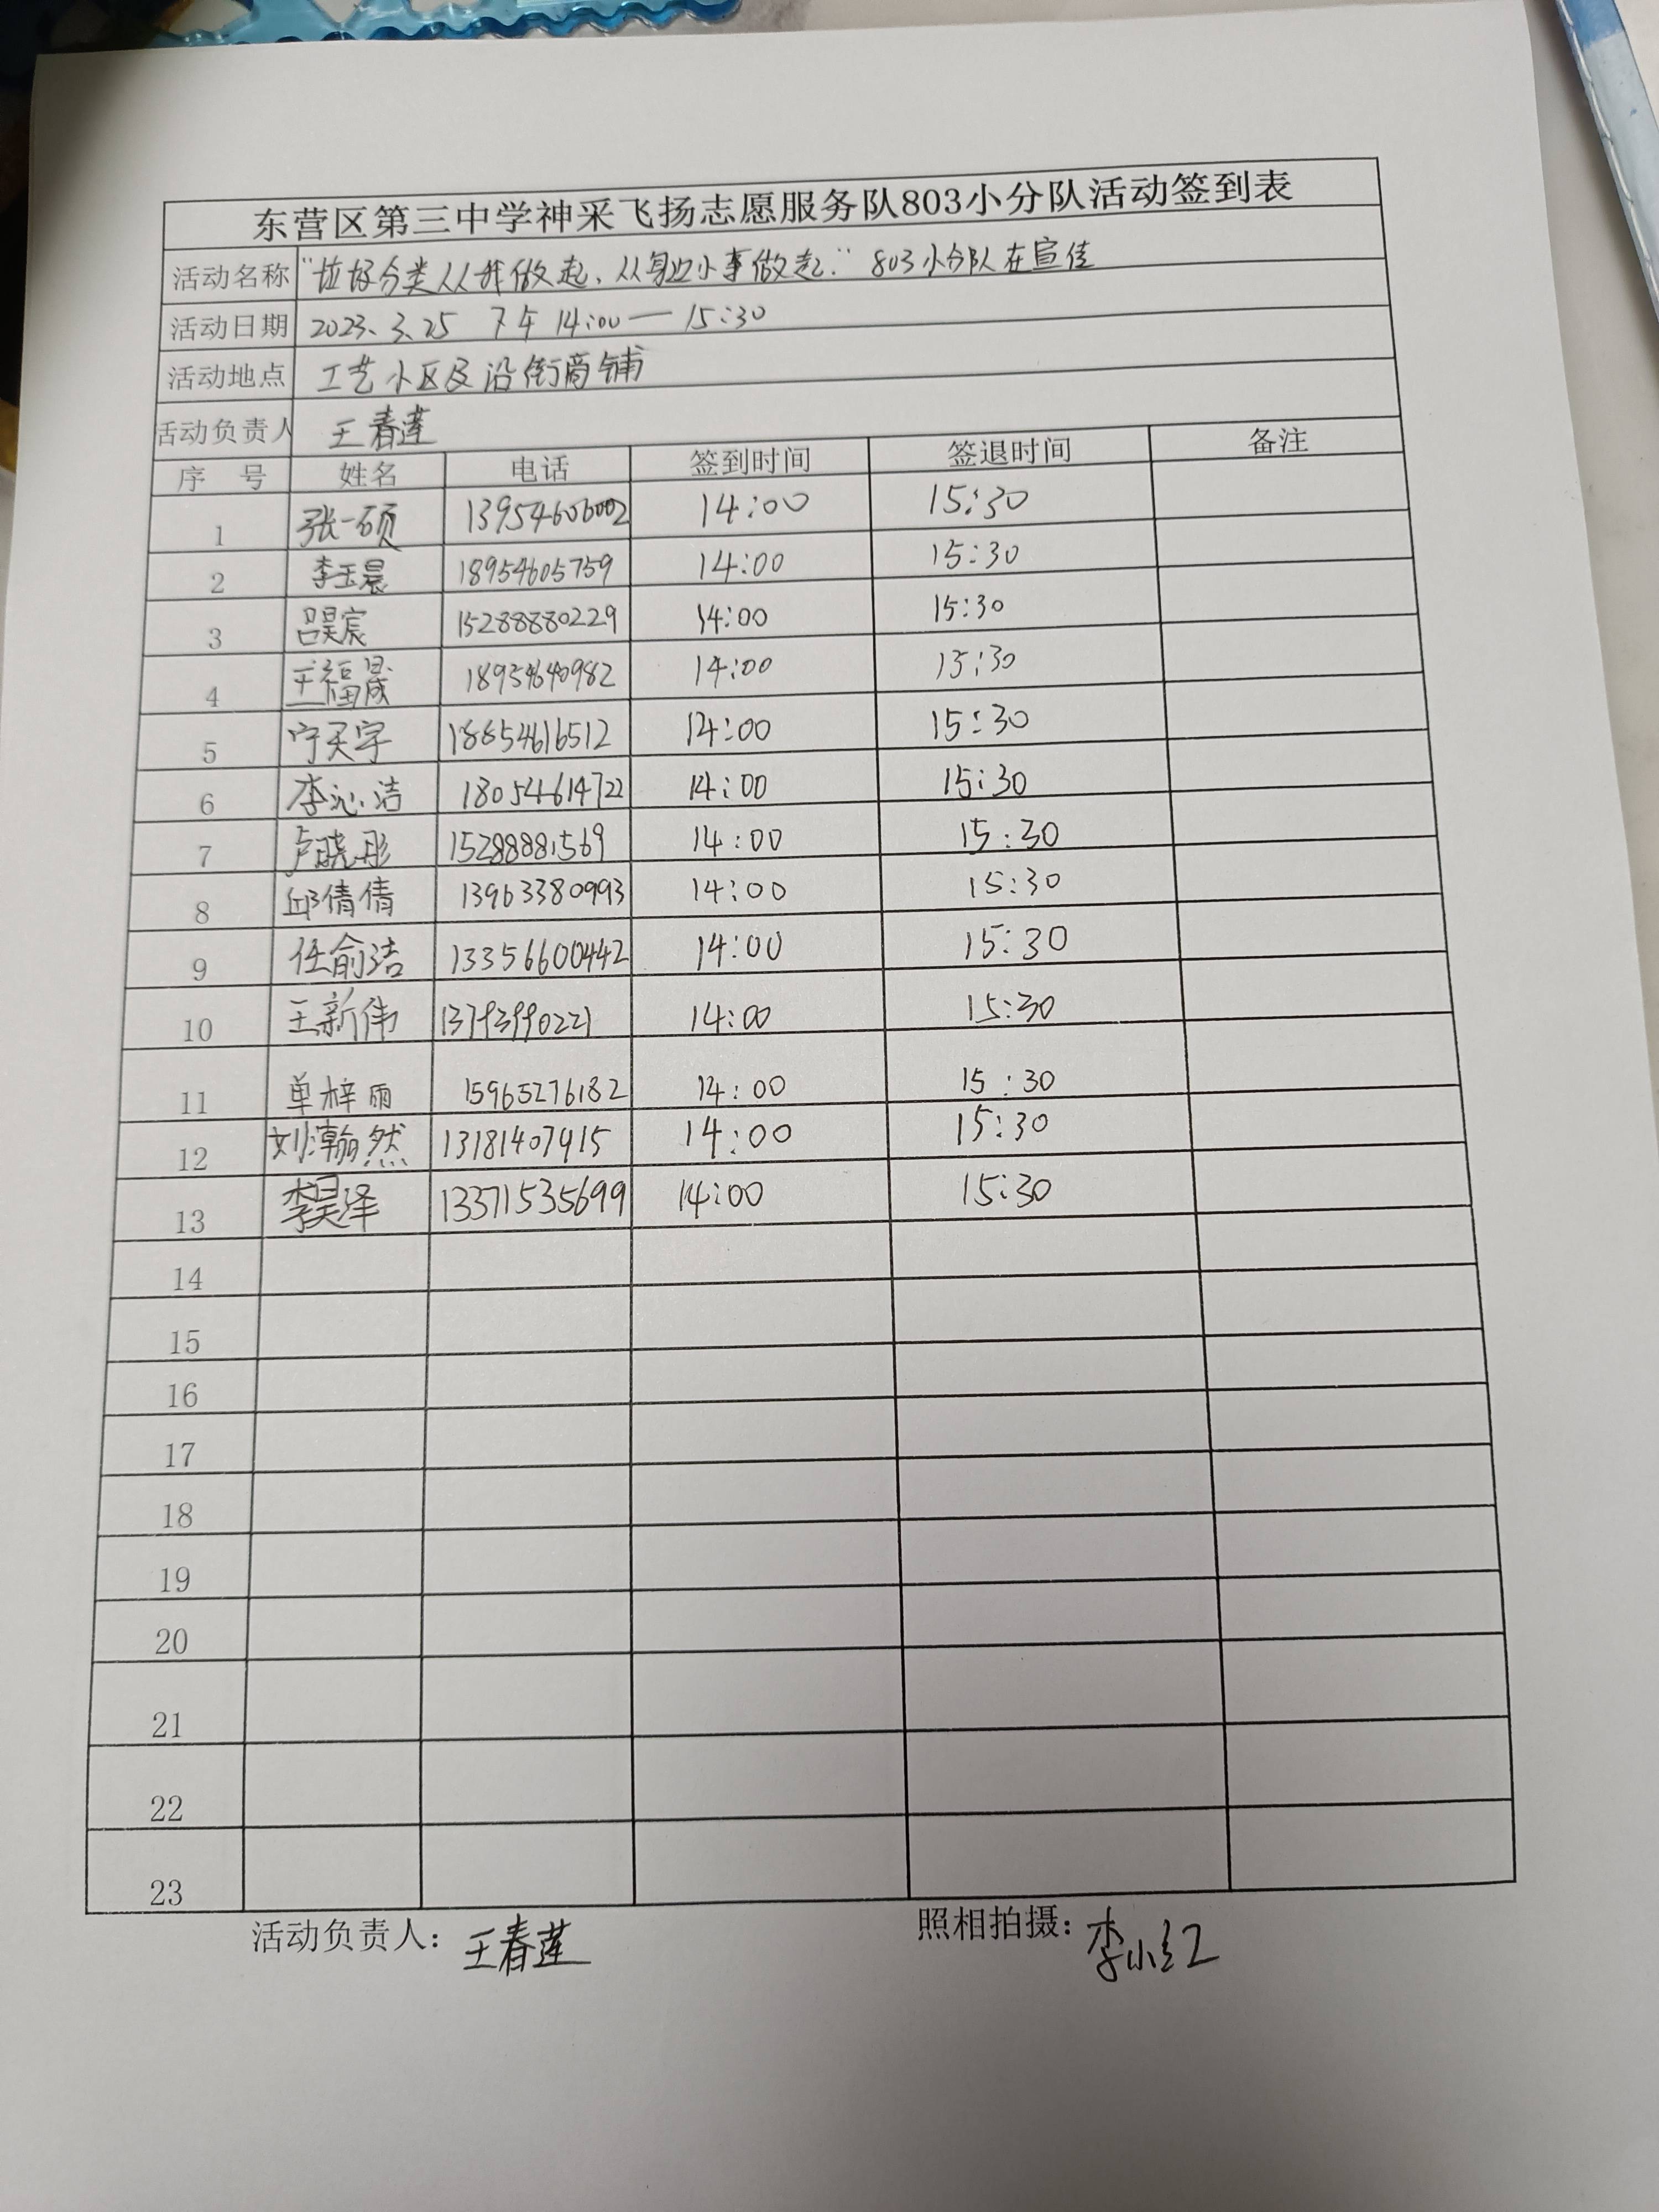 东营区第三中学神采飞扬志愿服务队803小分队活动签到表
活动名称 "垃圾分类从我做起、从身边小事做起." 803小分队在宣传
活动日期 2023.3.25 下午 14:00—15:30
活动地点 工艺小区及沿街商铺
活动负责人 王春莲
序 号 姓名 电话 签到时间 签退时间 备注
1 张一硕 13954606002 14:00 15:30
2 李玉晨 18954605759 14:00 15:30
3 吕昊宸 15288880229 14:00 15:30
4 王福晟 18954640982 14:00 15:30
5 宁天宇 18854616512 14:00 15:30
6 李沁洁 18054614722 14:00 15:30
7 卢晓彤 15288881569 14:00 15:30
8 邱倩倩 13963380993 14:00 15:30
9 任俞洁 13356600442 14:00 15:30
10 王新伟 13793990221 14:00 15:30
11 单梓雨 15965276182 14:00 15:30
12 刘瀚然 13181407915 14:00 15:30
13 李昊泽 13371535699 14:00 15:30
14
15
16
17
18
19
20
21
22
23
活动负责人：王春莲 照相拍摄：李小红